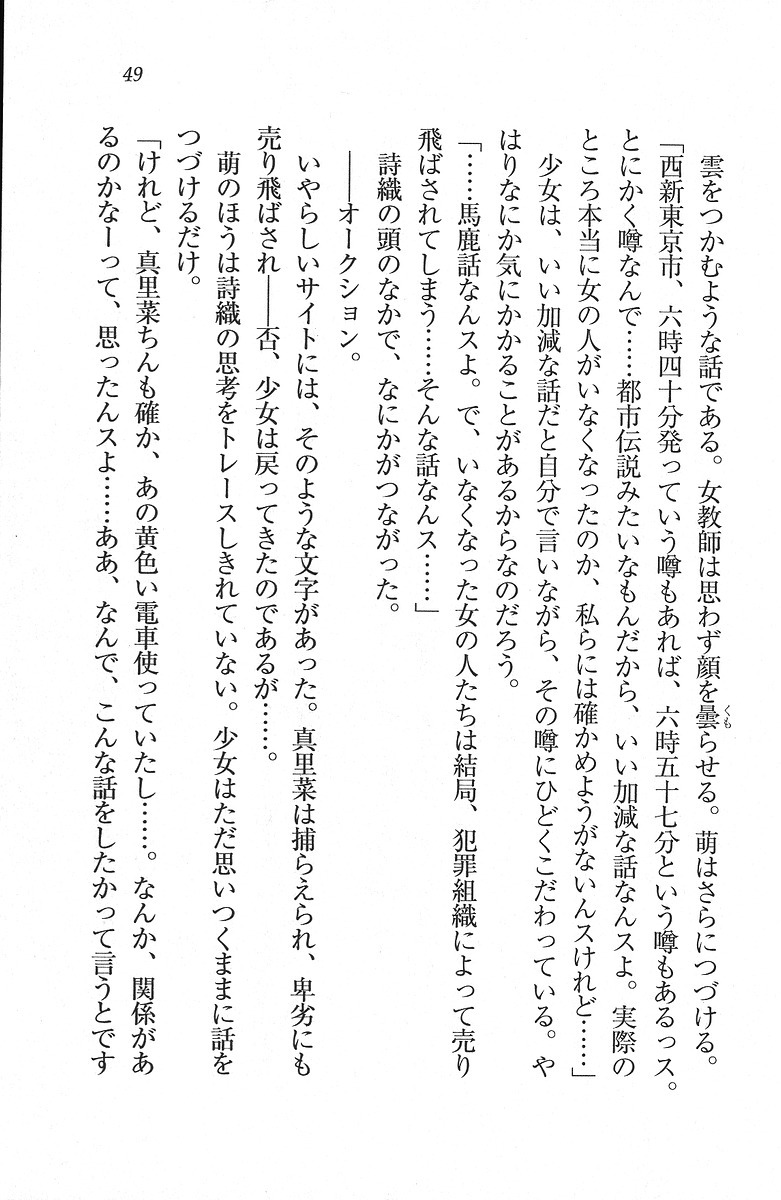 49
雲をつかむような話である。女教師は思わず顔を曇らせる。萌はさらにつづける。
くも
「西新東京市、六時四十分発っていう噂もあれば、六時五十七分という噂もあるっス。
とにかく噂なんで……都市伝説みたいなもんだから、いい加減な話なんスよ。実際の
ところ本当に女の人がいなくなったのか、私らには確かめようがないんスけれど……」
少女は、いい加減な話だと自分で言いながら、その噂にひどくこだわっている。や
はりなにか気にかかることがあるからなのだろう。
「……馬鹿話なんスよ。で、いなくなった女の人たちは結局、犯罪組織によって売り
飛ばされてしまう……そんな話なんス……」
詩織の頭のなかで、なにかがつながった。
――オークション。
いやらしいサイトには、そのような文字があった。真里菜は捕らえられ、卑劣にも
売り飛ばされ――否、少女は戻ってきたのであるが……。
萌のほうは詩織の思考をトレースしきれていない。少女はただ思いつくままに話を
つづけるだけ。
「けれど、真里菜ちんも確か、あの黄色い電車使っていたし……。なんか、関係があ
るのかなーって、思ったんスよ……ああ、なんで、こんな話をしたかって言うとです